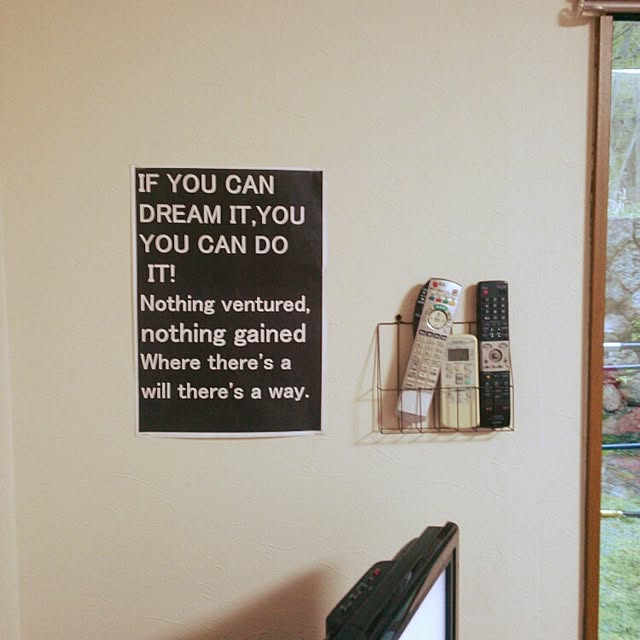 IF YOU CAN
DREAM IT,YOU
YOU CAN DO
IT!
Nothing ventured,
nothing gained
Where there's a
will there's a way.